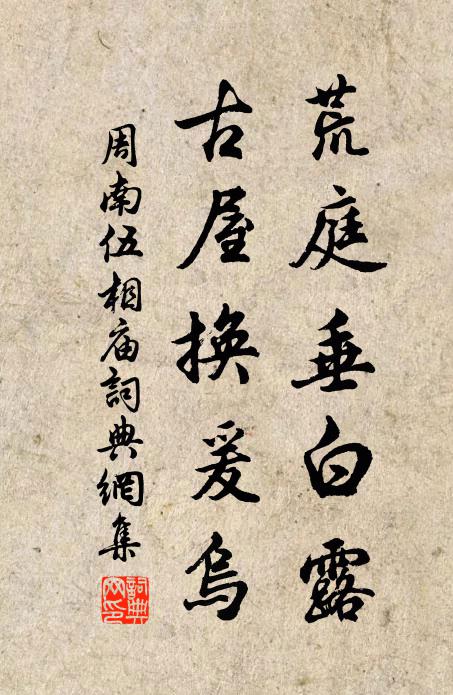 荒庭垂白露
古屋換爰烏
周南伍相庙詞典網集
詞典网印